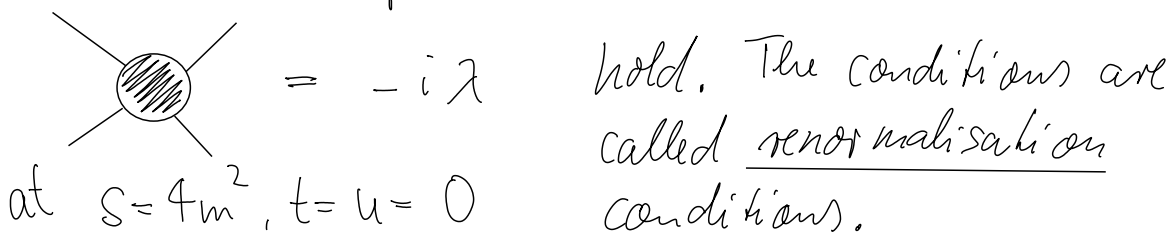 = - i λ
at s = 4m², t = u = 0
hold. The conditions are
called renormalisation
conditions.